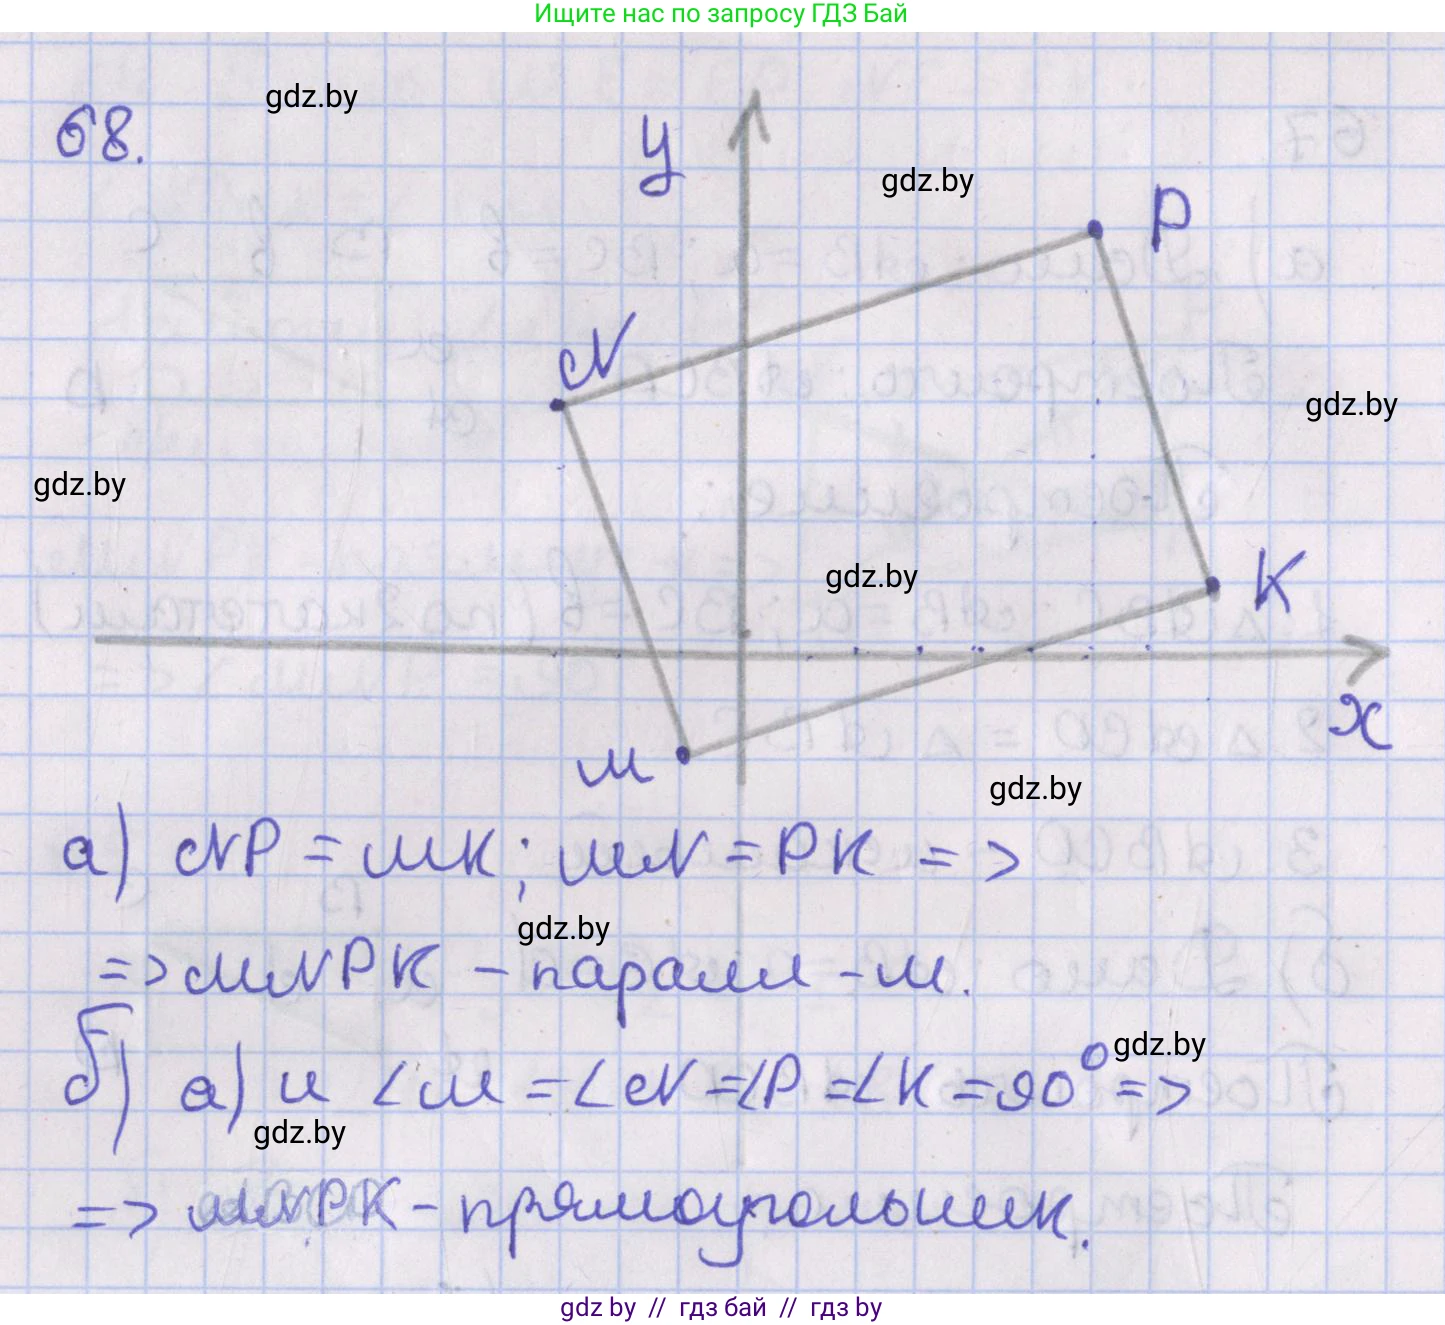 Ищите нас по запросу ГДЗ Бай
68.
gdz.by
y
gdz.by
P
N
gdz.by
gdz.by
gdz.by
K
x
M
gdz.by
а) NP = MK; MN = PK =>
gdz.by
=> MNPK - паралл-м.
gdz.by
б) а) и ∠M = ∠N = ∠P = ∠K = 90° =>
gdz.by
=> MNPK - прямоугольник.
gdz by // гдз бай // гдз by